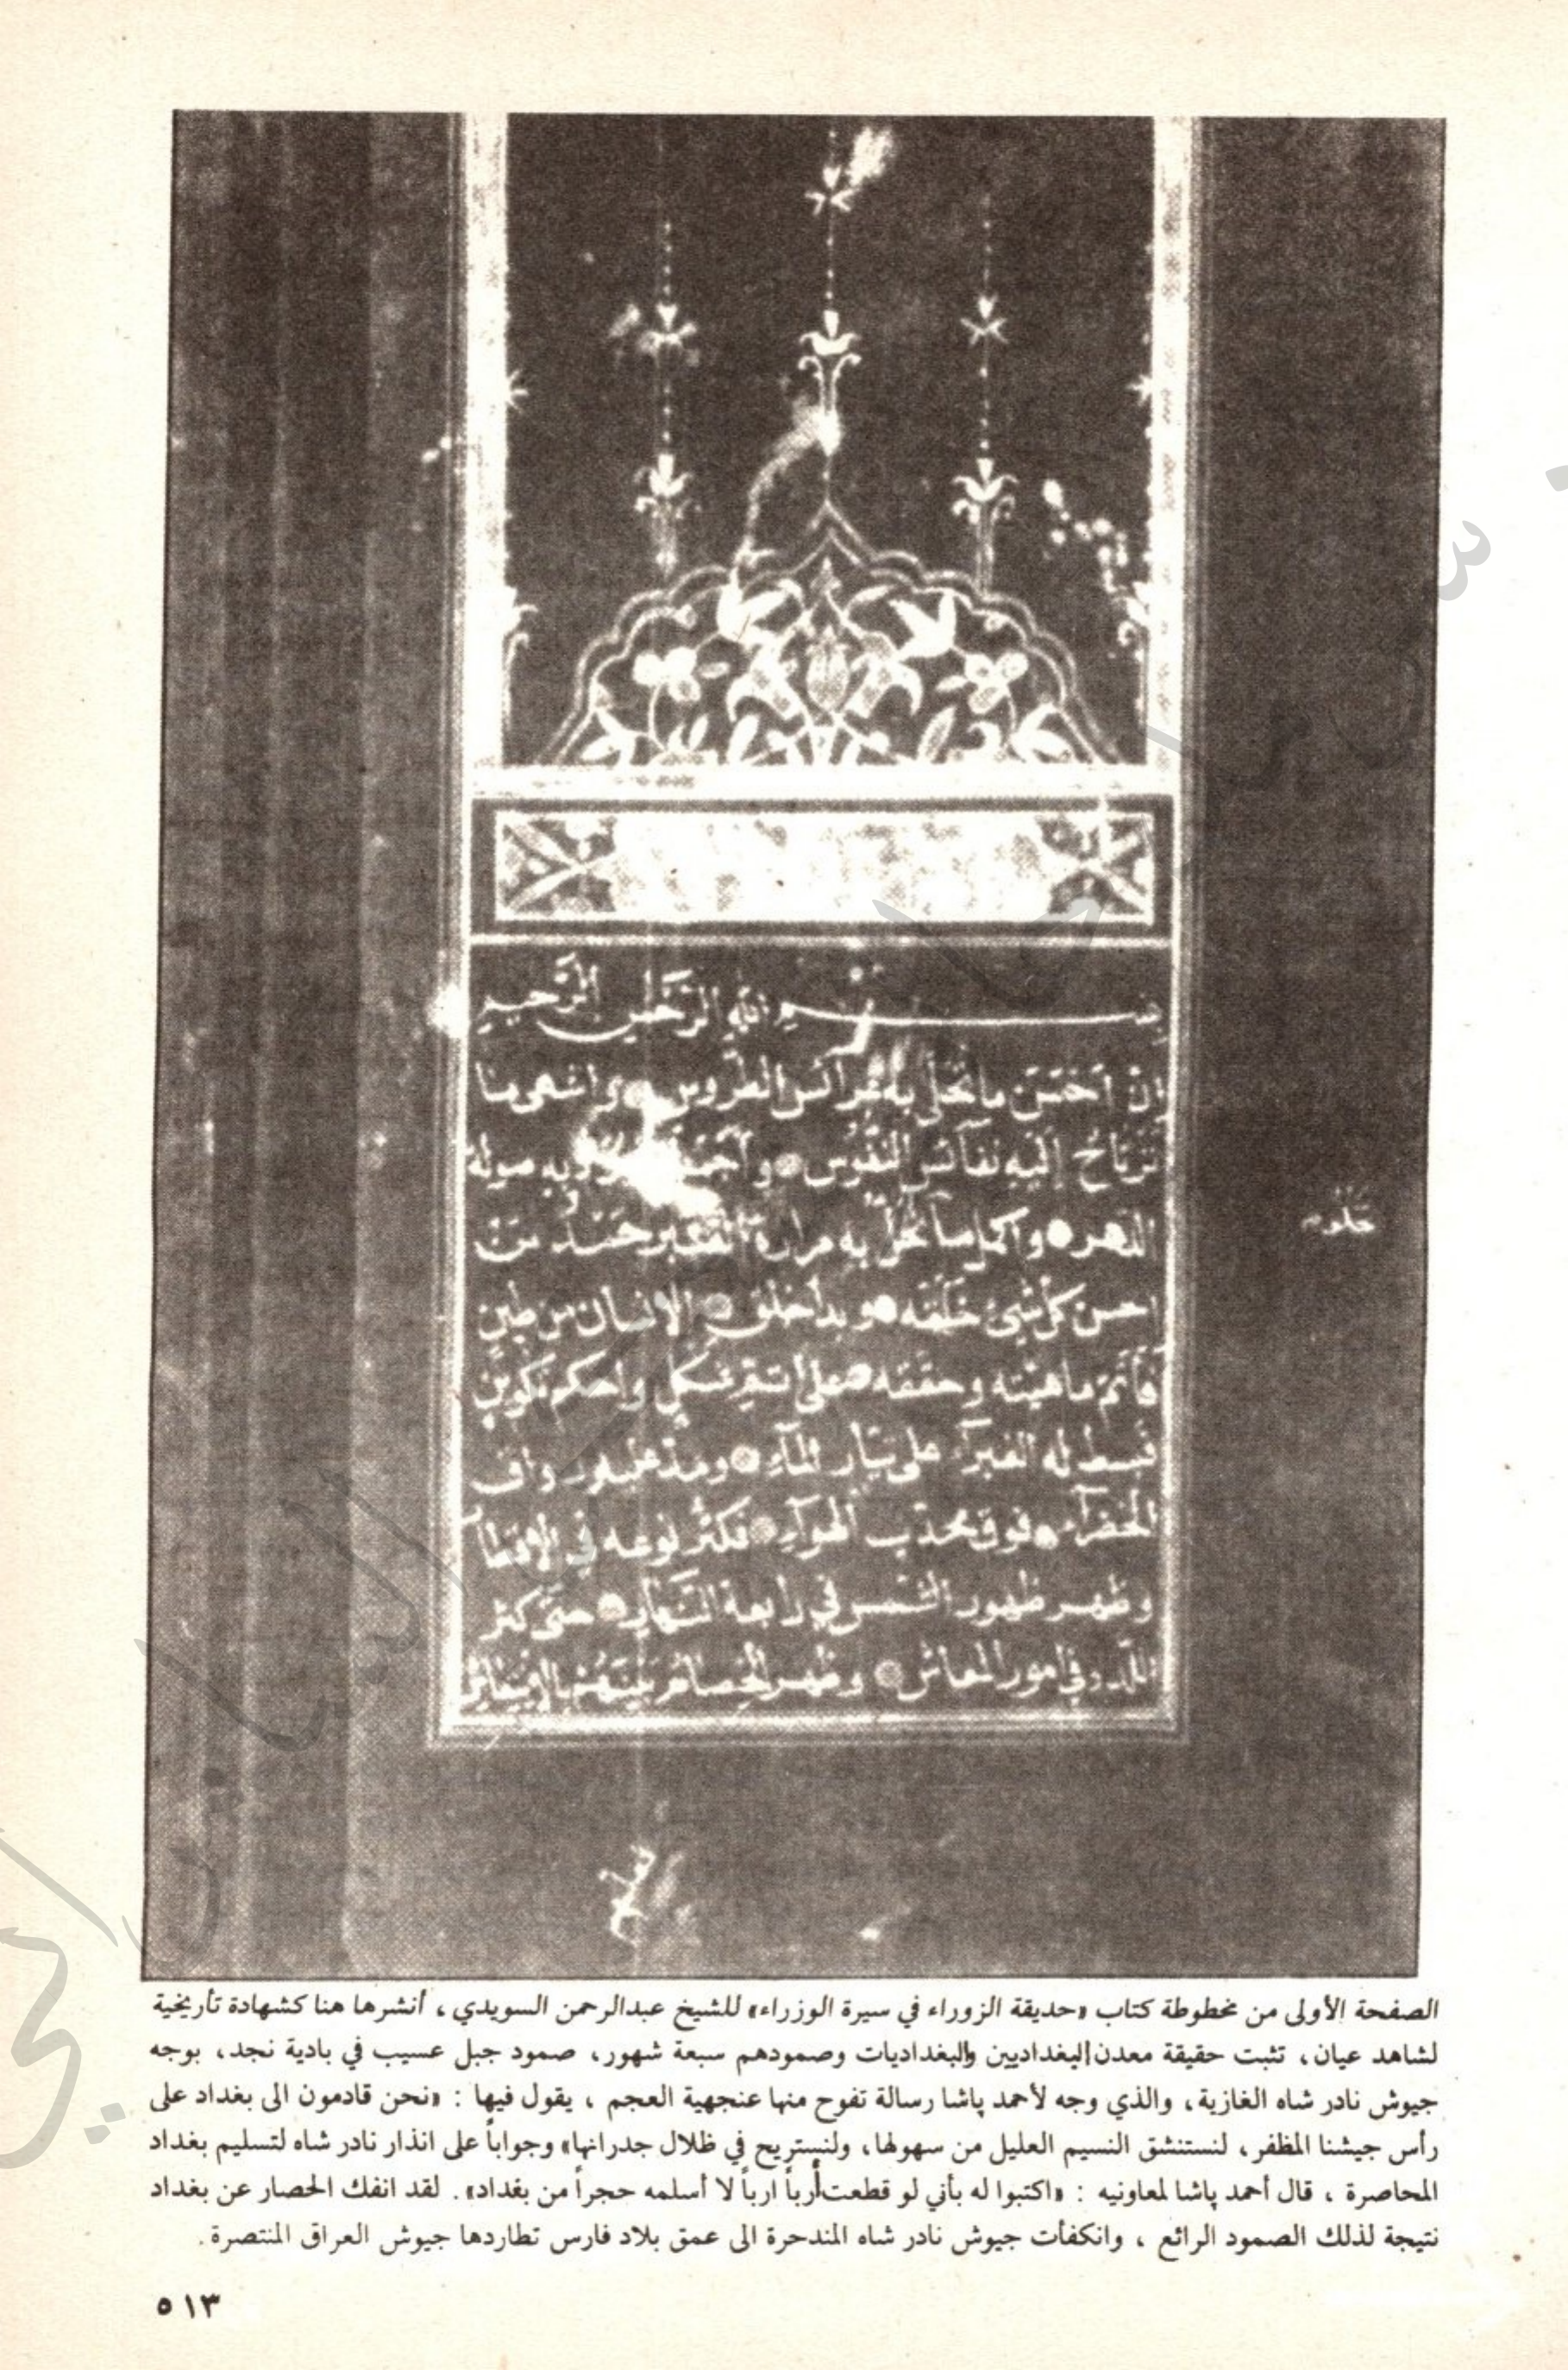 بسم الله الرحمن الرحيم
إن أحسن ما تحلى به عرائس الطروس وأشهى ما
ترتاح إليه نفائس النفوس به صولة
الدهر وأكمل ما به مرارة حمد من
أحسن كل شيئ خلقه وبدأ خلق الإنسان من طين
فأتم ماهيته وحققه على شكل وأحكم تكوين
فبسط له الغبرآء على تيار المآء ومد
الخضرآء فوق محدب الهوآء فكثر نوعه في الأقطار
وظهر ظهور الشمس في رابعة النهار حتى كثر
في امور المعاش وظهر بينهم
الصفحة الأولى من مخطوطة كتاب «حديقة الزوراء في سيرة الوزراء» للشيخ عبدالرحمن السويدي ، أنشرها هنا كشهادة تأريخية
لشاهد عيان ، تثبت حقيقة معدن البغداديين والبغداديات وصمودهم سبعة شهور، صمود جبل عسيب في بادية نجد، بوجه
جيوش نادر شاه الغازية، والذي وجه لأحمد پاشا رسالة تفوح منها عنجهية العجم ، يقول فيها : «نحن قادمون الى بغداد على
رأس جيشنا المظفر، لنستنشق النسيم العليل من سهولها، ولنستريح في ظلال جدرانها» وجواباً على انذار نادر شاه لتسليم بغداد
المحاصرة ، قال أحمد پاشا لمعاونيه : «اكتبوا له بأني لو قطعت أرباً ارباً لا أسلمه حجراً من بغداد». لقد انفك الحصار عن بغداد
نتيجة لذلك الصمود الرائع ، وانكفأت جيوش نادر شاه المندحرة الى عمق بلاد فارس تطاردها جيوش العراق المنتصرة.
٥١٣